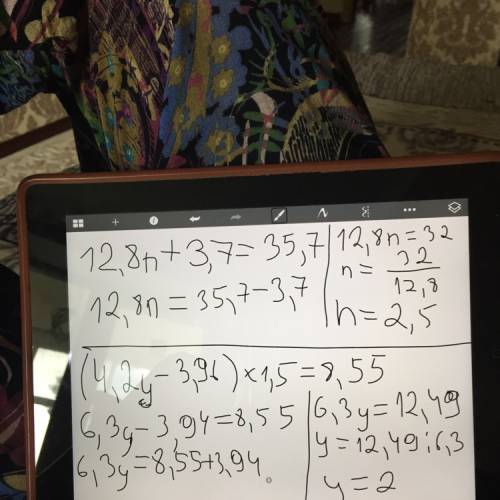 12,8n + 3,7 = 35,7
12,8n = 35,7 - 3,7
12,8n = 32
n = 32/12,8
n = 2,5
(4,2y - 3,96) × 1,5 = 8,55
6,3y - 3,94 = 8,55
6,3y = 8,55 + 3,94
6,3y = 12,49
y = 12,49 : 6,3
y = 2